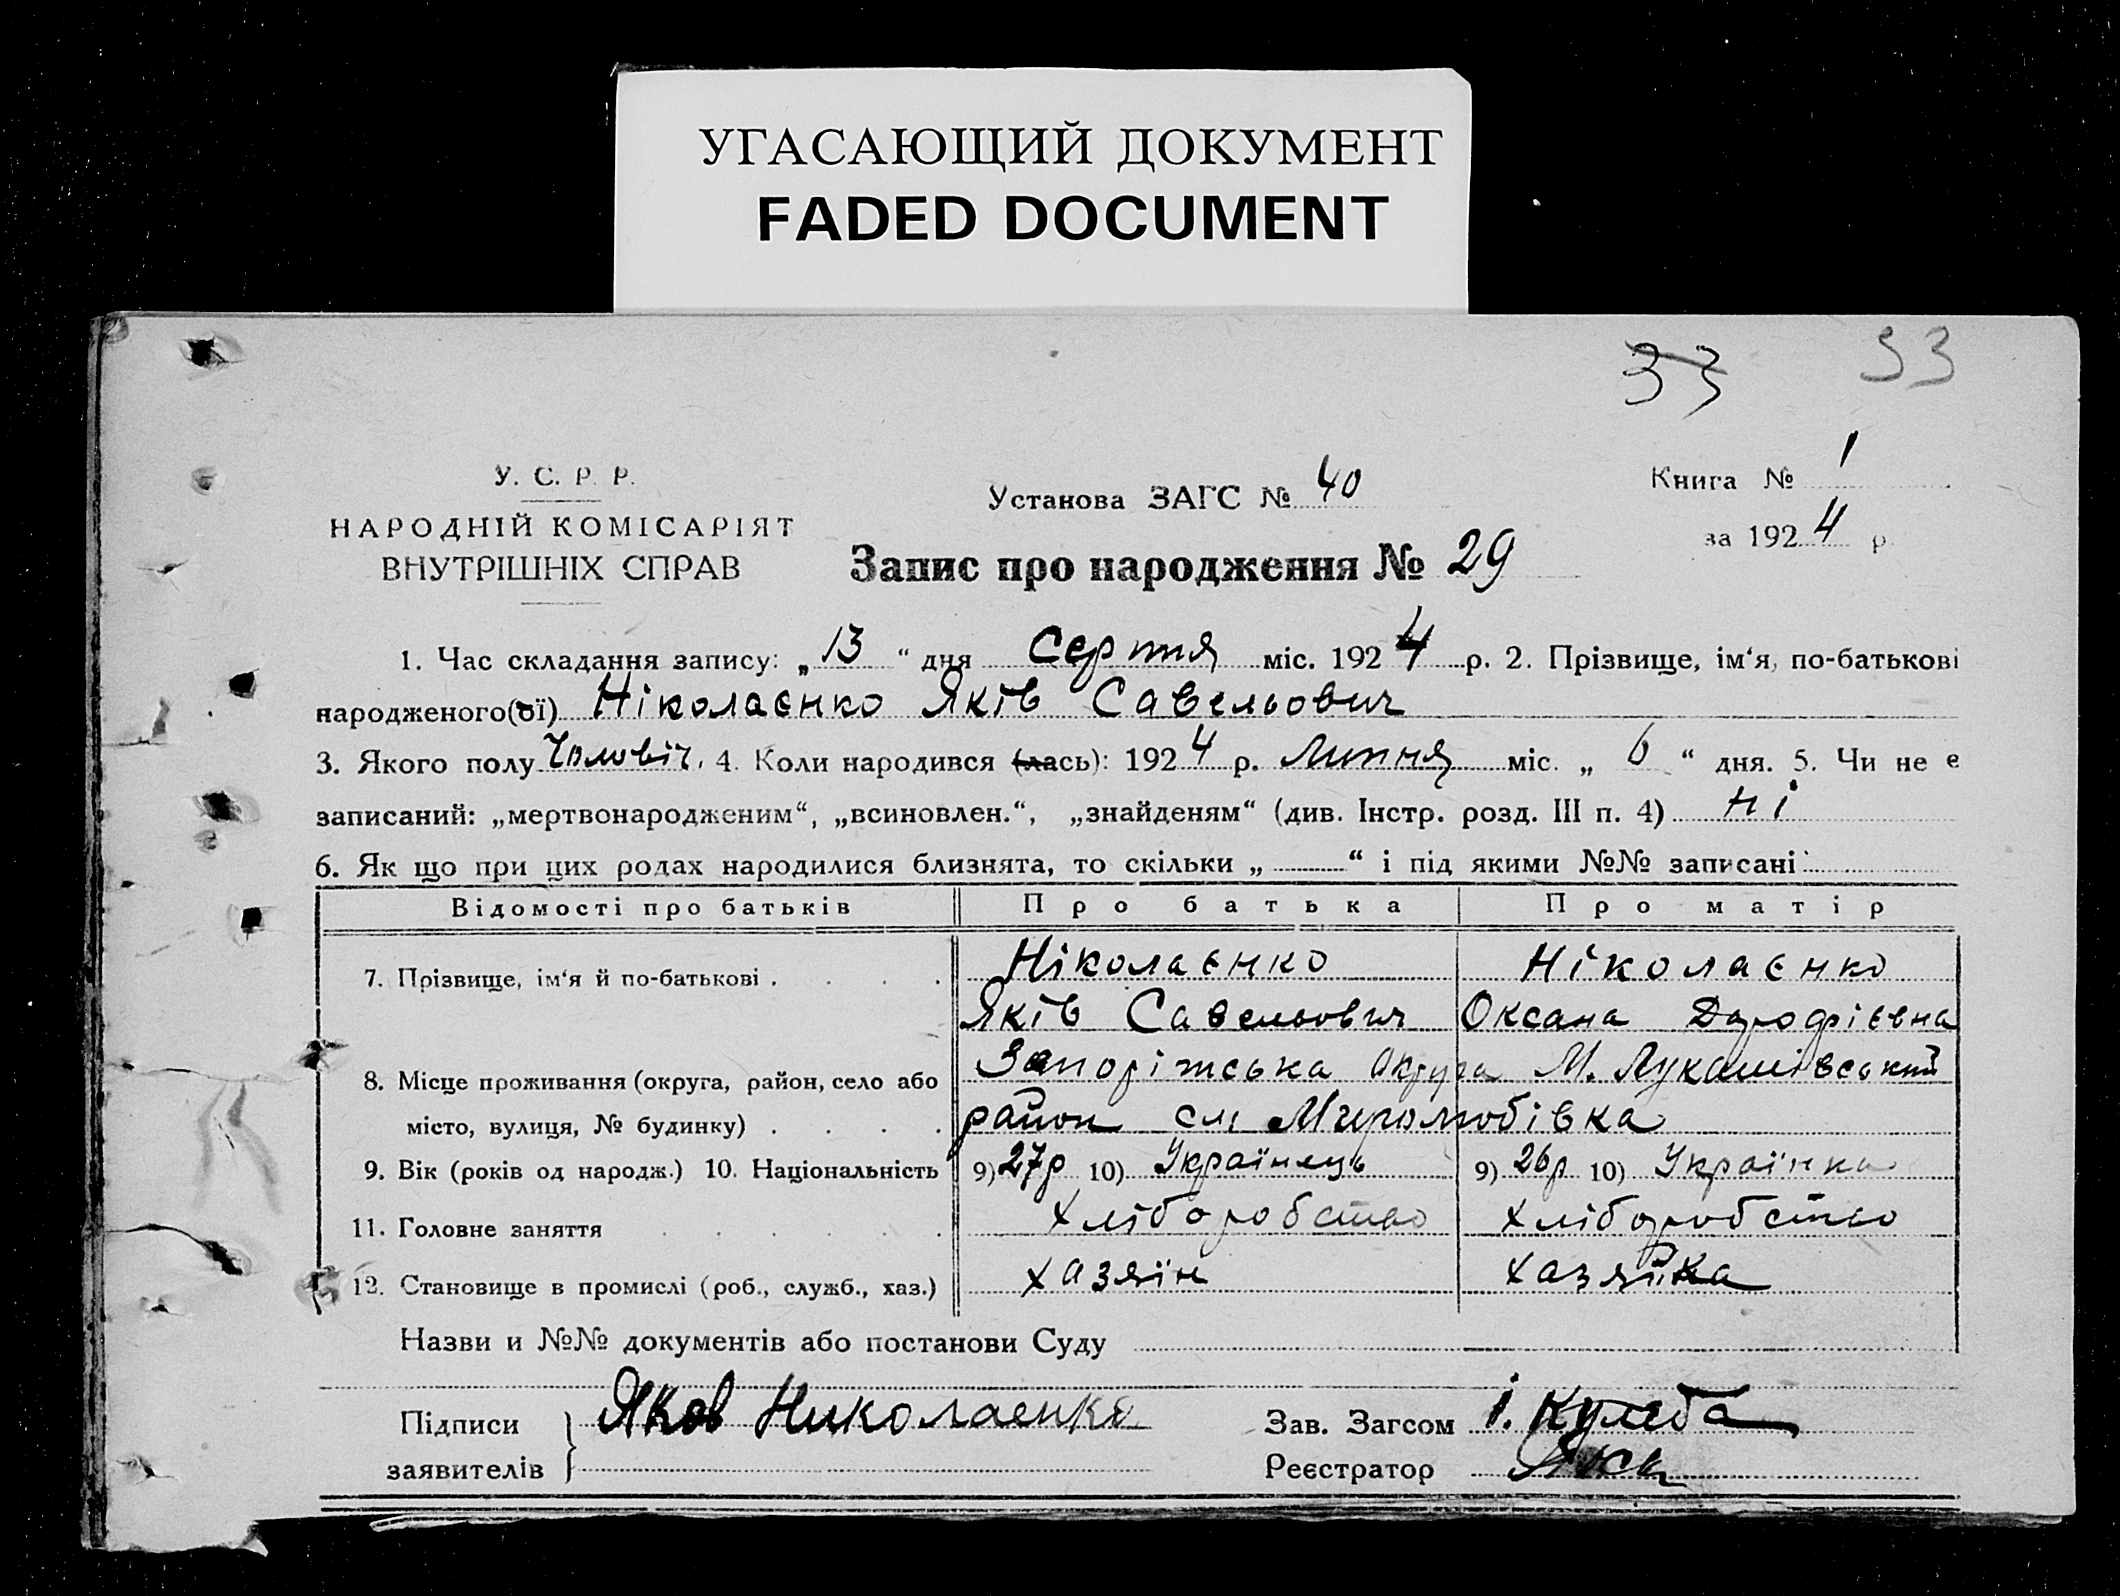 УГАСАЮЩИЙ ДОКУМЕНТ
FADED DOCUMENT
33 33
У. С. Р. Р.
НАРОДНІЙ КОМІСАРІЯТ
ВНУТРІШНІХ СПРАВ
Установа ЗАГС № 40
Книга № 1
за 1924 р.
Запис про народження № 29
1. Час складання запису: „13“ дня Серпня міс. 1924 р. 2. Прізвище, ім‘я, по-батькові
народженого(ої) Ніколаєнко Яків Савельович
3. Якого полу Чоловіч. 4. Коли народився (лась): 1924 р. Липня міс. „6“ дня. 5. Чи не є
записаний: „мертвонародженим“, „всиновлен.“, „знайденям“ (див. Інстр. розд. III п. 4) ні
6. Як що при цих родах народилися близнята, то скільки „ “ і під якими №№ записані
Відомості про батьків Про батька Про матір
7. Прізвище, ім‘я й по-батькові Ніколаєнко Ніколаєнко
Яків Савельович Оксана Дорофієвна
8. Місце проживання (округа, район, село або Запоріжська округа М. Лукашівський
місто, вулиця, № будинку) район Миролюбівка
9. Вік (років од народж.) 10. Національність 9) 27р 10) Українець 9) 26р 10) Українка
11. Головне заняття Хліборобство Хліборобство
12. Становище в промислі (роб., служб., хаз.) хазяїн хазяйка
Назви и №№ документів або постанови Суду
Підписи Яков Николаенко Зав. Загсом І. Кулеба
заявителів Реєстратор